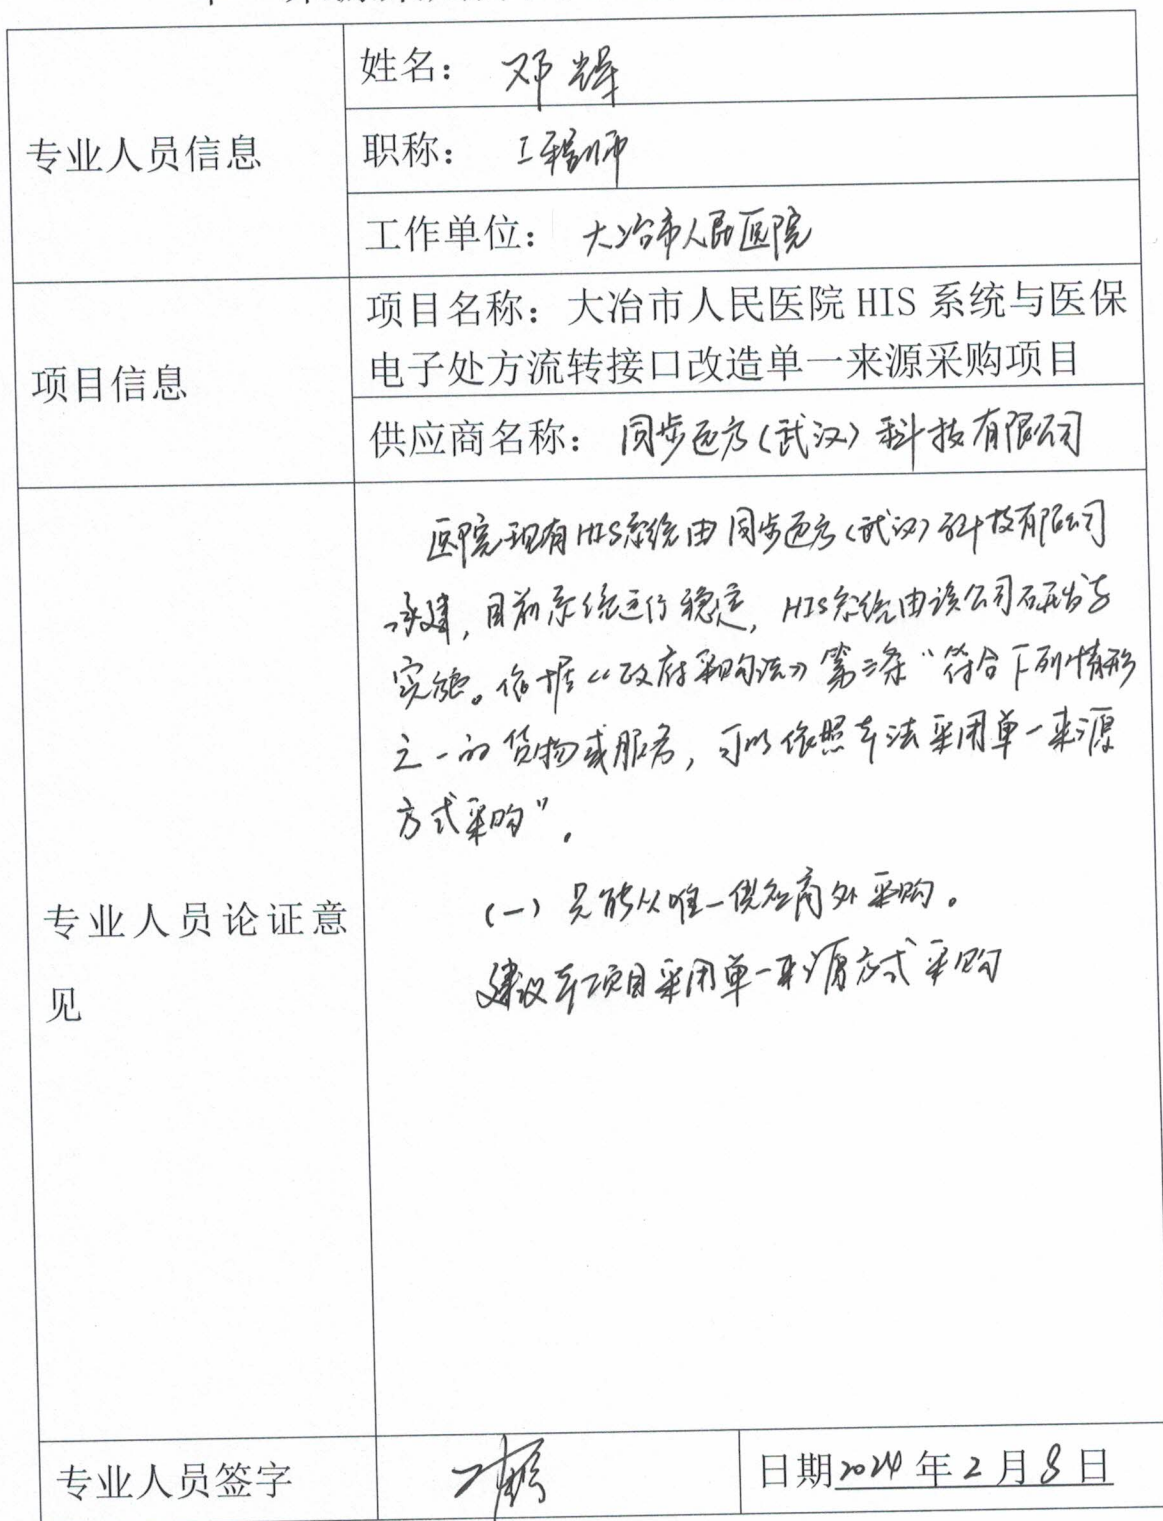 专业人员信息
姓名： 邓辉
职称： 工程师
工作单位： 大冶市人民医院
项目信息
项目名称：大冶市人民医院 HIS 系统与医保
电子处方流转接口改造单一来源采购项目
供应商名称： 同步远方（武汉）科技有限公司
专业人员论证意
见
医院现有HIS系统由同步远方（武汉）科技有限公司
承建，目前系统运行稳定，HIS系统由该公司研发与
实施。依据《政府采购法》第三条“符合下列情形
之一的货物或服务，可以依照本法采用单一来源
方式采购”。
（一）只能从唯一供应商处采购。
建议本项目采用单一来源方式采购
专业人员签字
日期2024年2月8日